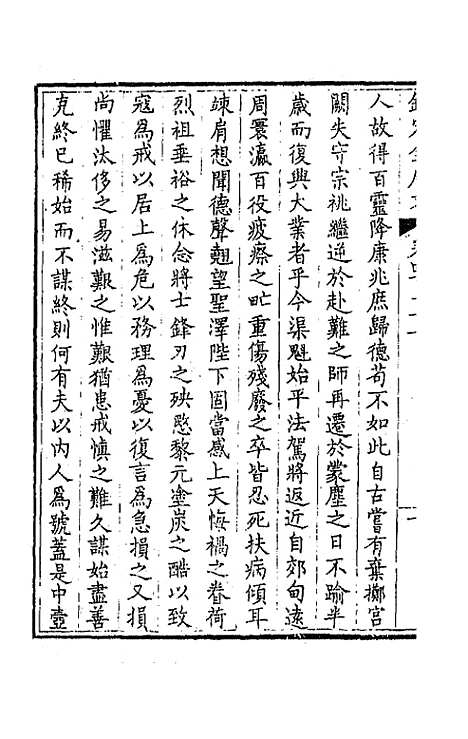 人故得百靈降康兆庶歸德苟不如此自古嘗有棄擲宮
闕失守宗祧繼逆於赴難之師再遷於蒙塵之日不踰半
歲而復興大業者乎今渠魁始平法駕將返近自郊甸遠
周寰瀛百役疲瘵之甿重傷殘廢之卒皆忍死扶病傾耳
竦肩想聞德聲翹望聖澤陛下固當感上天悔禍之眷荷
烈祖垂裕之休念將士鋒刃之殃愍黎元塗炭之酷以致
寇為戒以居上為危以務理為憂以復言為急損之又損
尚懼汰侈之易滋艱之惟艱猶患戒慎之難久謀始盡善
克終已稀始而不謀終則何有夫以內人為號蓋是中壼